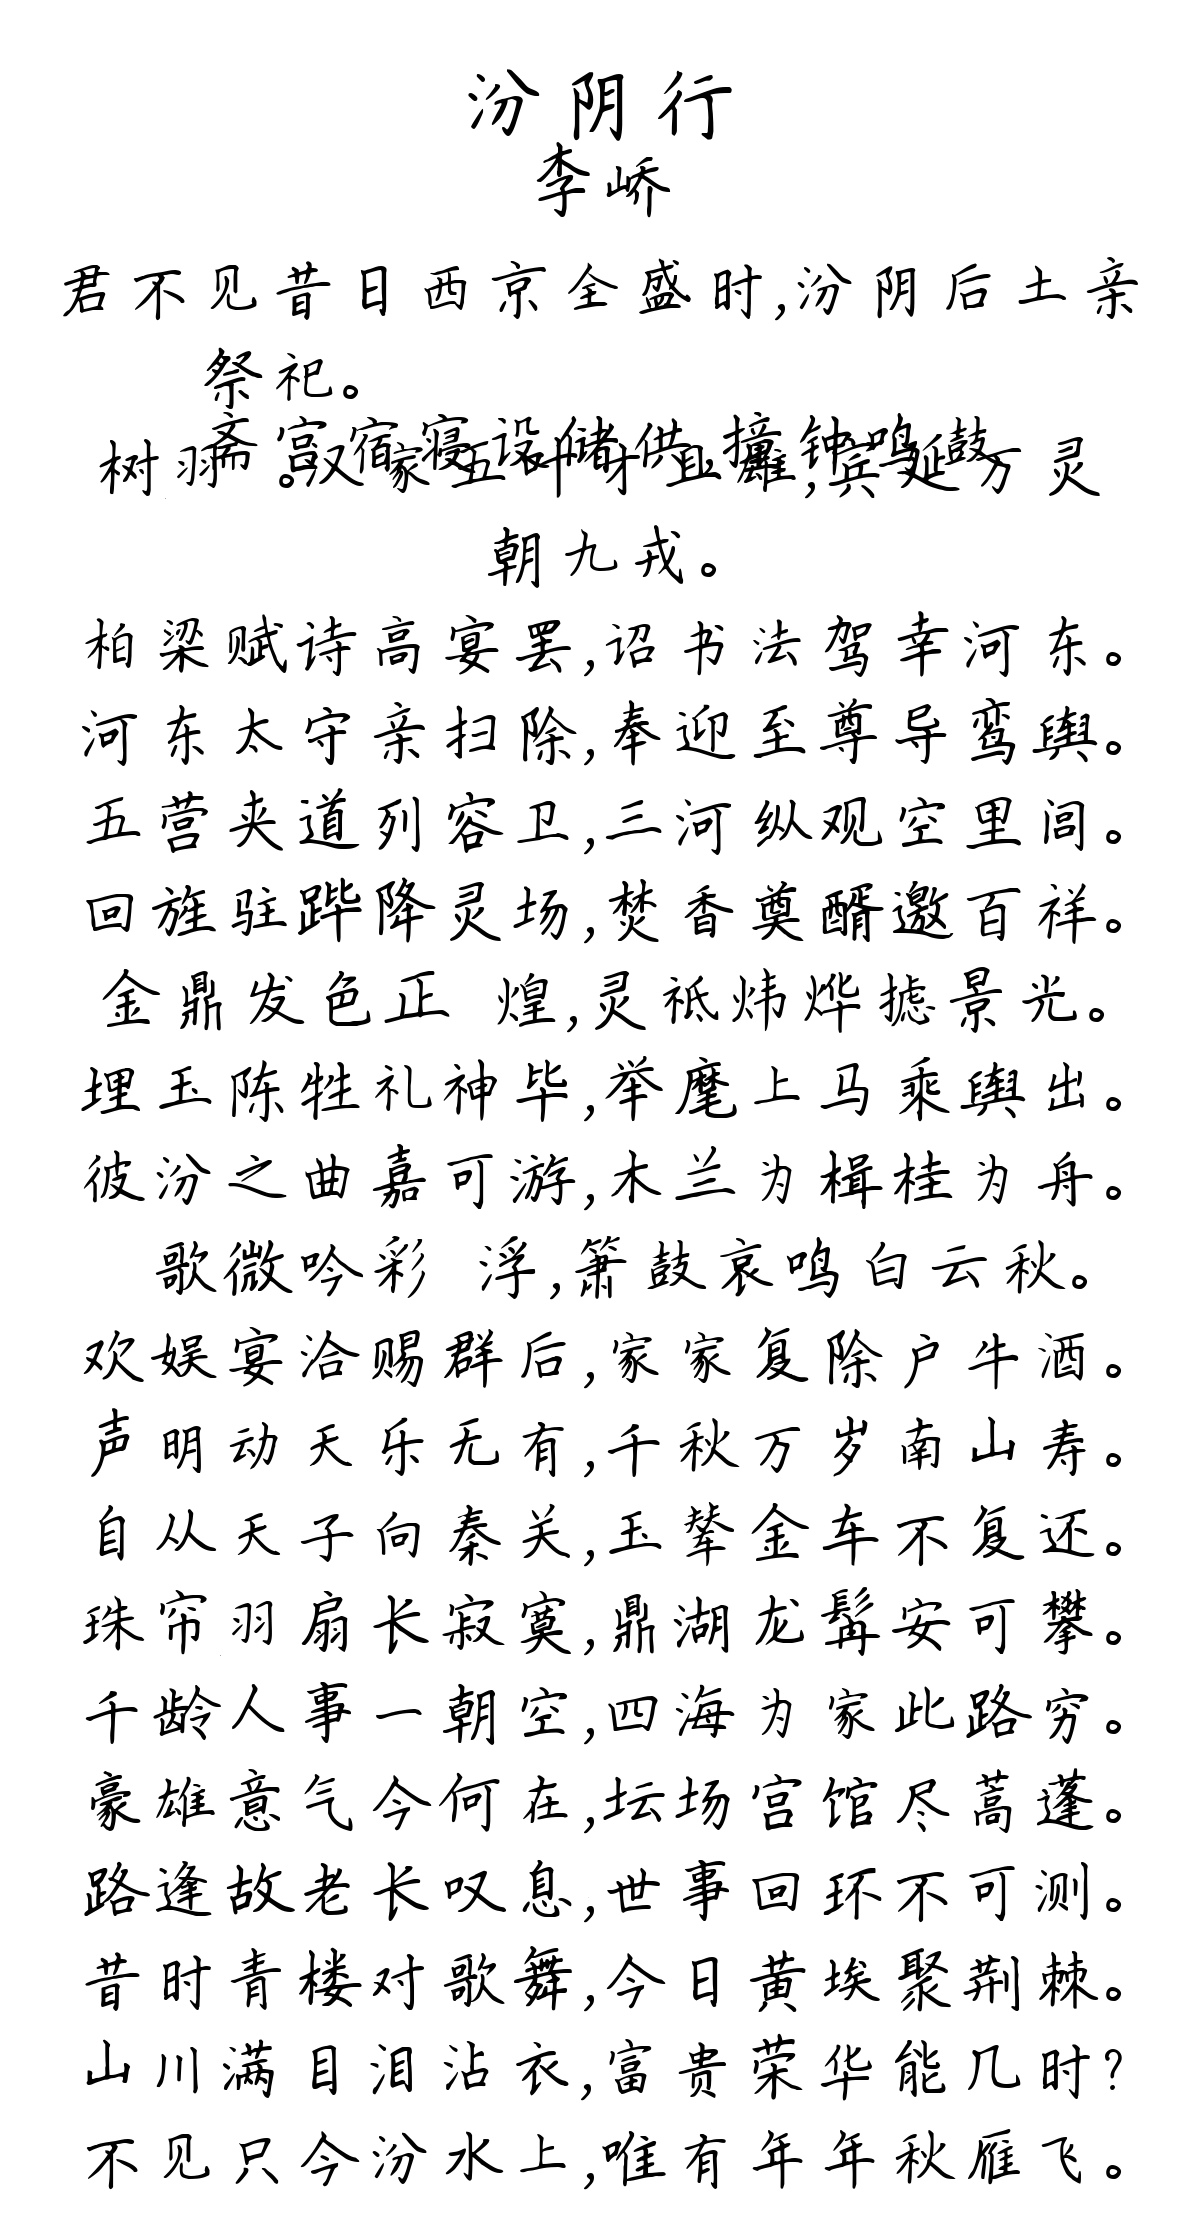 汾阴行
李峤
君不见昔日西京全盛时,汾阴后土亲
祭祀。
斋宫宿寝设储供,撞钟鸣鼓
树羽 。汉家五叶才且雄,宾延万灵
朝九戎。
柏梁赋诗高宴罢,诏书法驾幸河东。
河东太守亲扫除,奉迎至尊导鸾舆。
五营夹道列容卫,三河纵观空里闾。
回旌驻跸降灵场,焚香奠醑邀百祥。
金鼎发色正 煌,灵祗炜烨摅景光。
埋玉陈牲礼神毕,举麾上马乘舆出。
彼汾之曲嘉可游,木兰为楫桂为舟。
歌微吟彩 浮,箫鼓哀鸣白云秋。
欢娱宴洽赐群后,家家复除户牛酒。
声明动天乐无有,千秋万岁南山寿。
自从天子向秦关,玉辇金车不复还。
珠帘羽扇长寂寞,鼎湖龙髯安可攀。
千龄人事一朝空,四海为家此路穷。
豪雄意气今何在,坛场宫馆尽蒿蓬。
路逢故老长叹息,世事回环不可测。
昔时青楼对歌舞,今日黄埃聚荆棘。
山川满目泪沾衣,富贵荣华能几时?
不见只今汾水上,唯有年年秋雁飞。